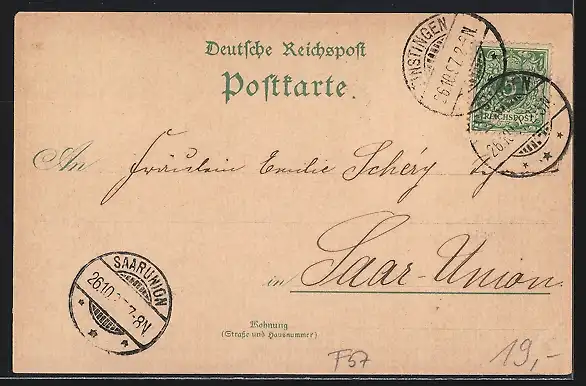 Deutsche Reichspost
Postkarte.
FINSTINGEN
26.10.97. 2-3N
REICHSPOST
26.10
An Fräulein Emilie Schéry
in Saar-Union.
SAARUNION
26.10.97.7-8N
Wohnung
(Straße und Hausnummer)
F57
19,-